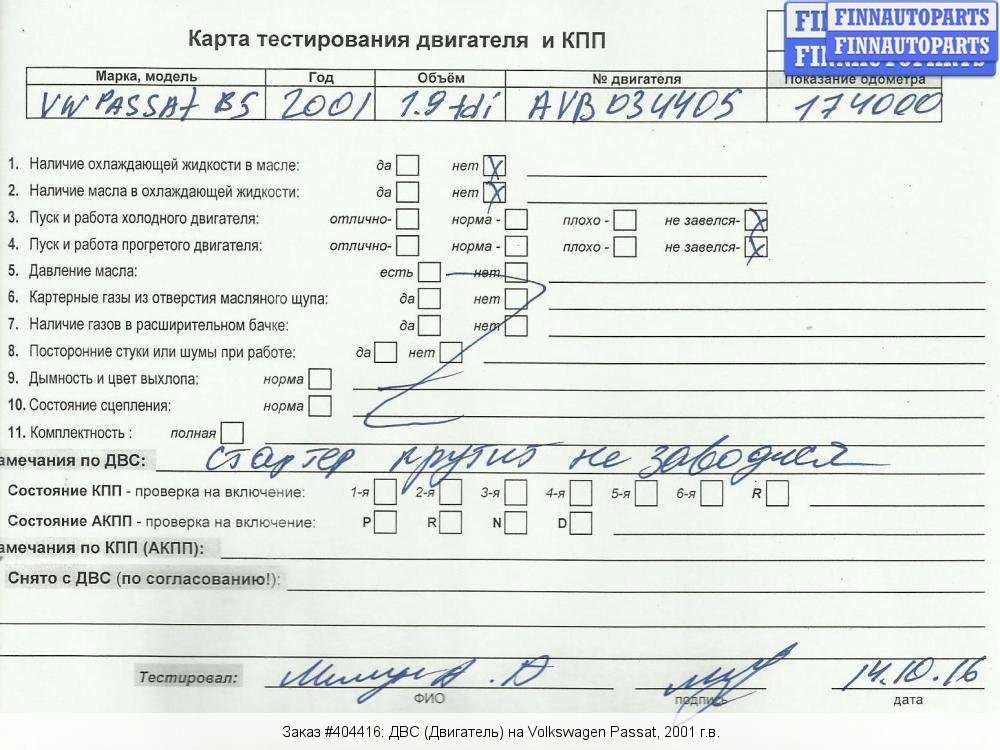 FINNAUTOPARTS
FINNAUTOPARTS
Карта тестирования двигателя и КПП
Марка, модель Год Объём № двигателя Показание одометра
VW PASSAT B5 2001 1.9 tdi AVB 034405 174000
1. Наличие охлаждающей жидкости в масле: да нет X
2. Наличие масла в охлаждающей жидкости: да нет X
3. Пуск и работа холодного двигателя: отлично- норма - плохо - не завелся- X
4. Пуск и работа прогретого двигателя: отлично- норма - плохо - не завелся- X
5. Давление масла: есть нет
6. Картерные газы из отверстия масляного щупа: да нет
7. Наличие газов в расширительном бачке: да нет
8. Посторонние стуки или шумы при работе: да нет
9. Дымность и цвет выхлопа: норма
10. Состояние сцепления: норма
11. Комплектность : полная
амечания по ДВС: стартер крутит не заводися
Состояние КПП - проверка на включение: 1-я 2-я 3-я 4-я 5-я 6-я R
Состояние АКПП - проверка на включение: P R N D
амечания по КПП (АКПП):
Снято с ДВС (по согласованию!):
Тестировал: 14.10.16
ФИО подпись дата
Заказ #404416: ДВС (Двигатель) на Volkswagen Passat, 2001 г.в.